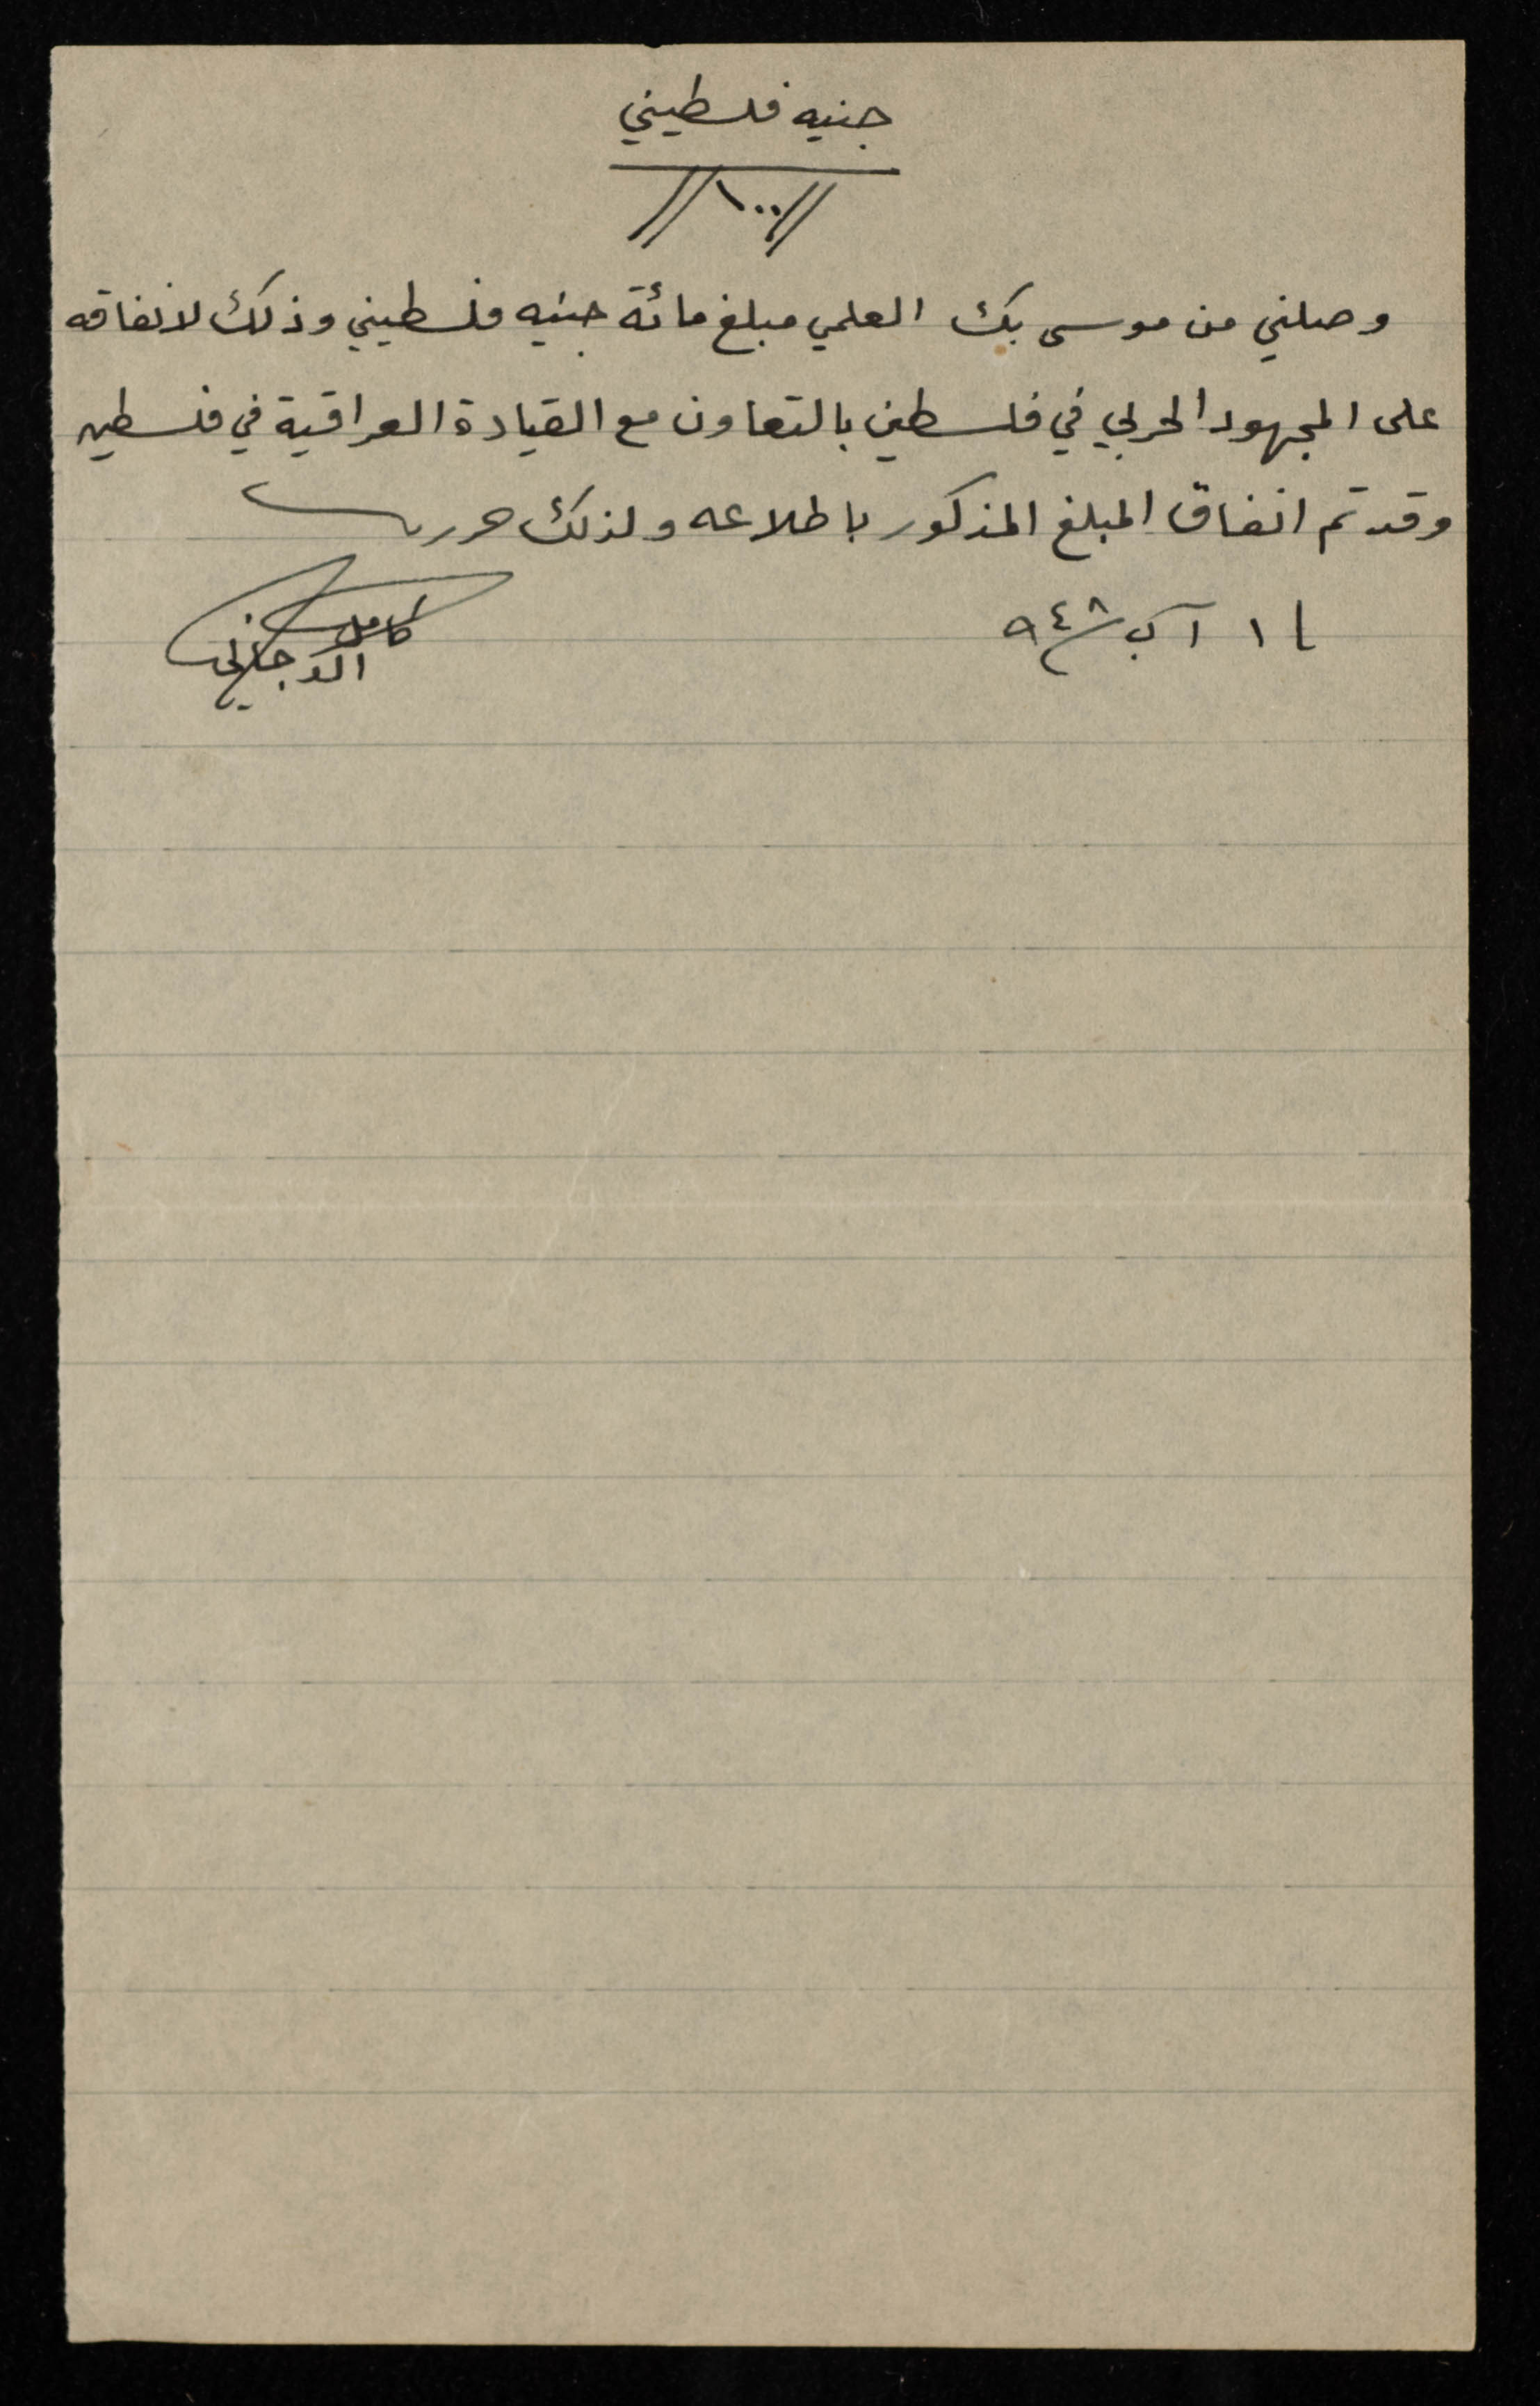 جنيه فلسطيني
//١٠٠//
وصلني من موسى بك العلمي مبلغ مائة جنيه فلسطيني وذلك لانفاقه
على المجهود الحربي في فلسطين بالتعاون مع القيادة العراقية في فلسطين
وقد تم انفاق المبلغ المذكور باطلاعه ولذلك حرر
١ آب ٩٤٨
كامل الدجاني